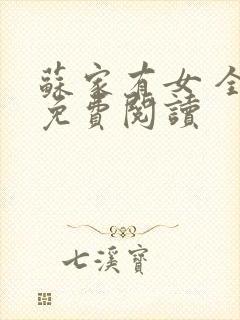 蘇家有女 全
免費閱讀
七溪寶